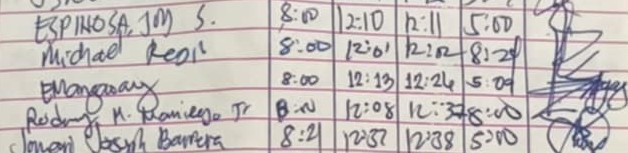 ESPINOSA, JM S. 8:00 12:10 12:11 5:00
Michael 8:00 12:01 12:02 8:29
8:00 12:13 12:26 5:09
M. Jr 8:00 12:08 12:37 8:00
Joseph Barrera 8:21 12:37 12:38 5:00